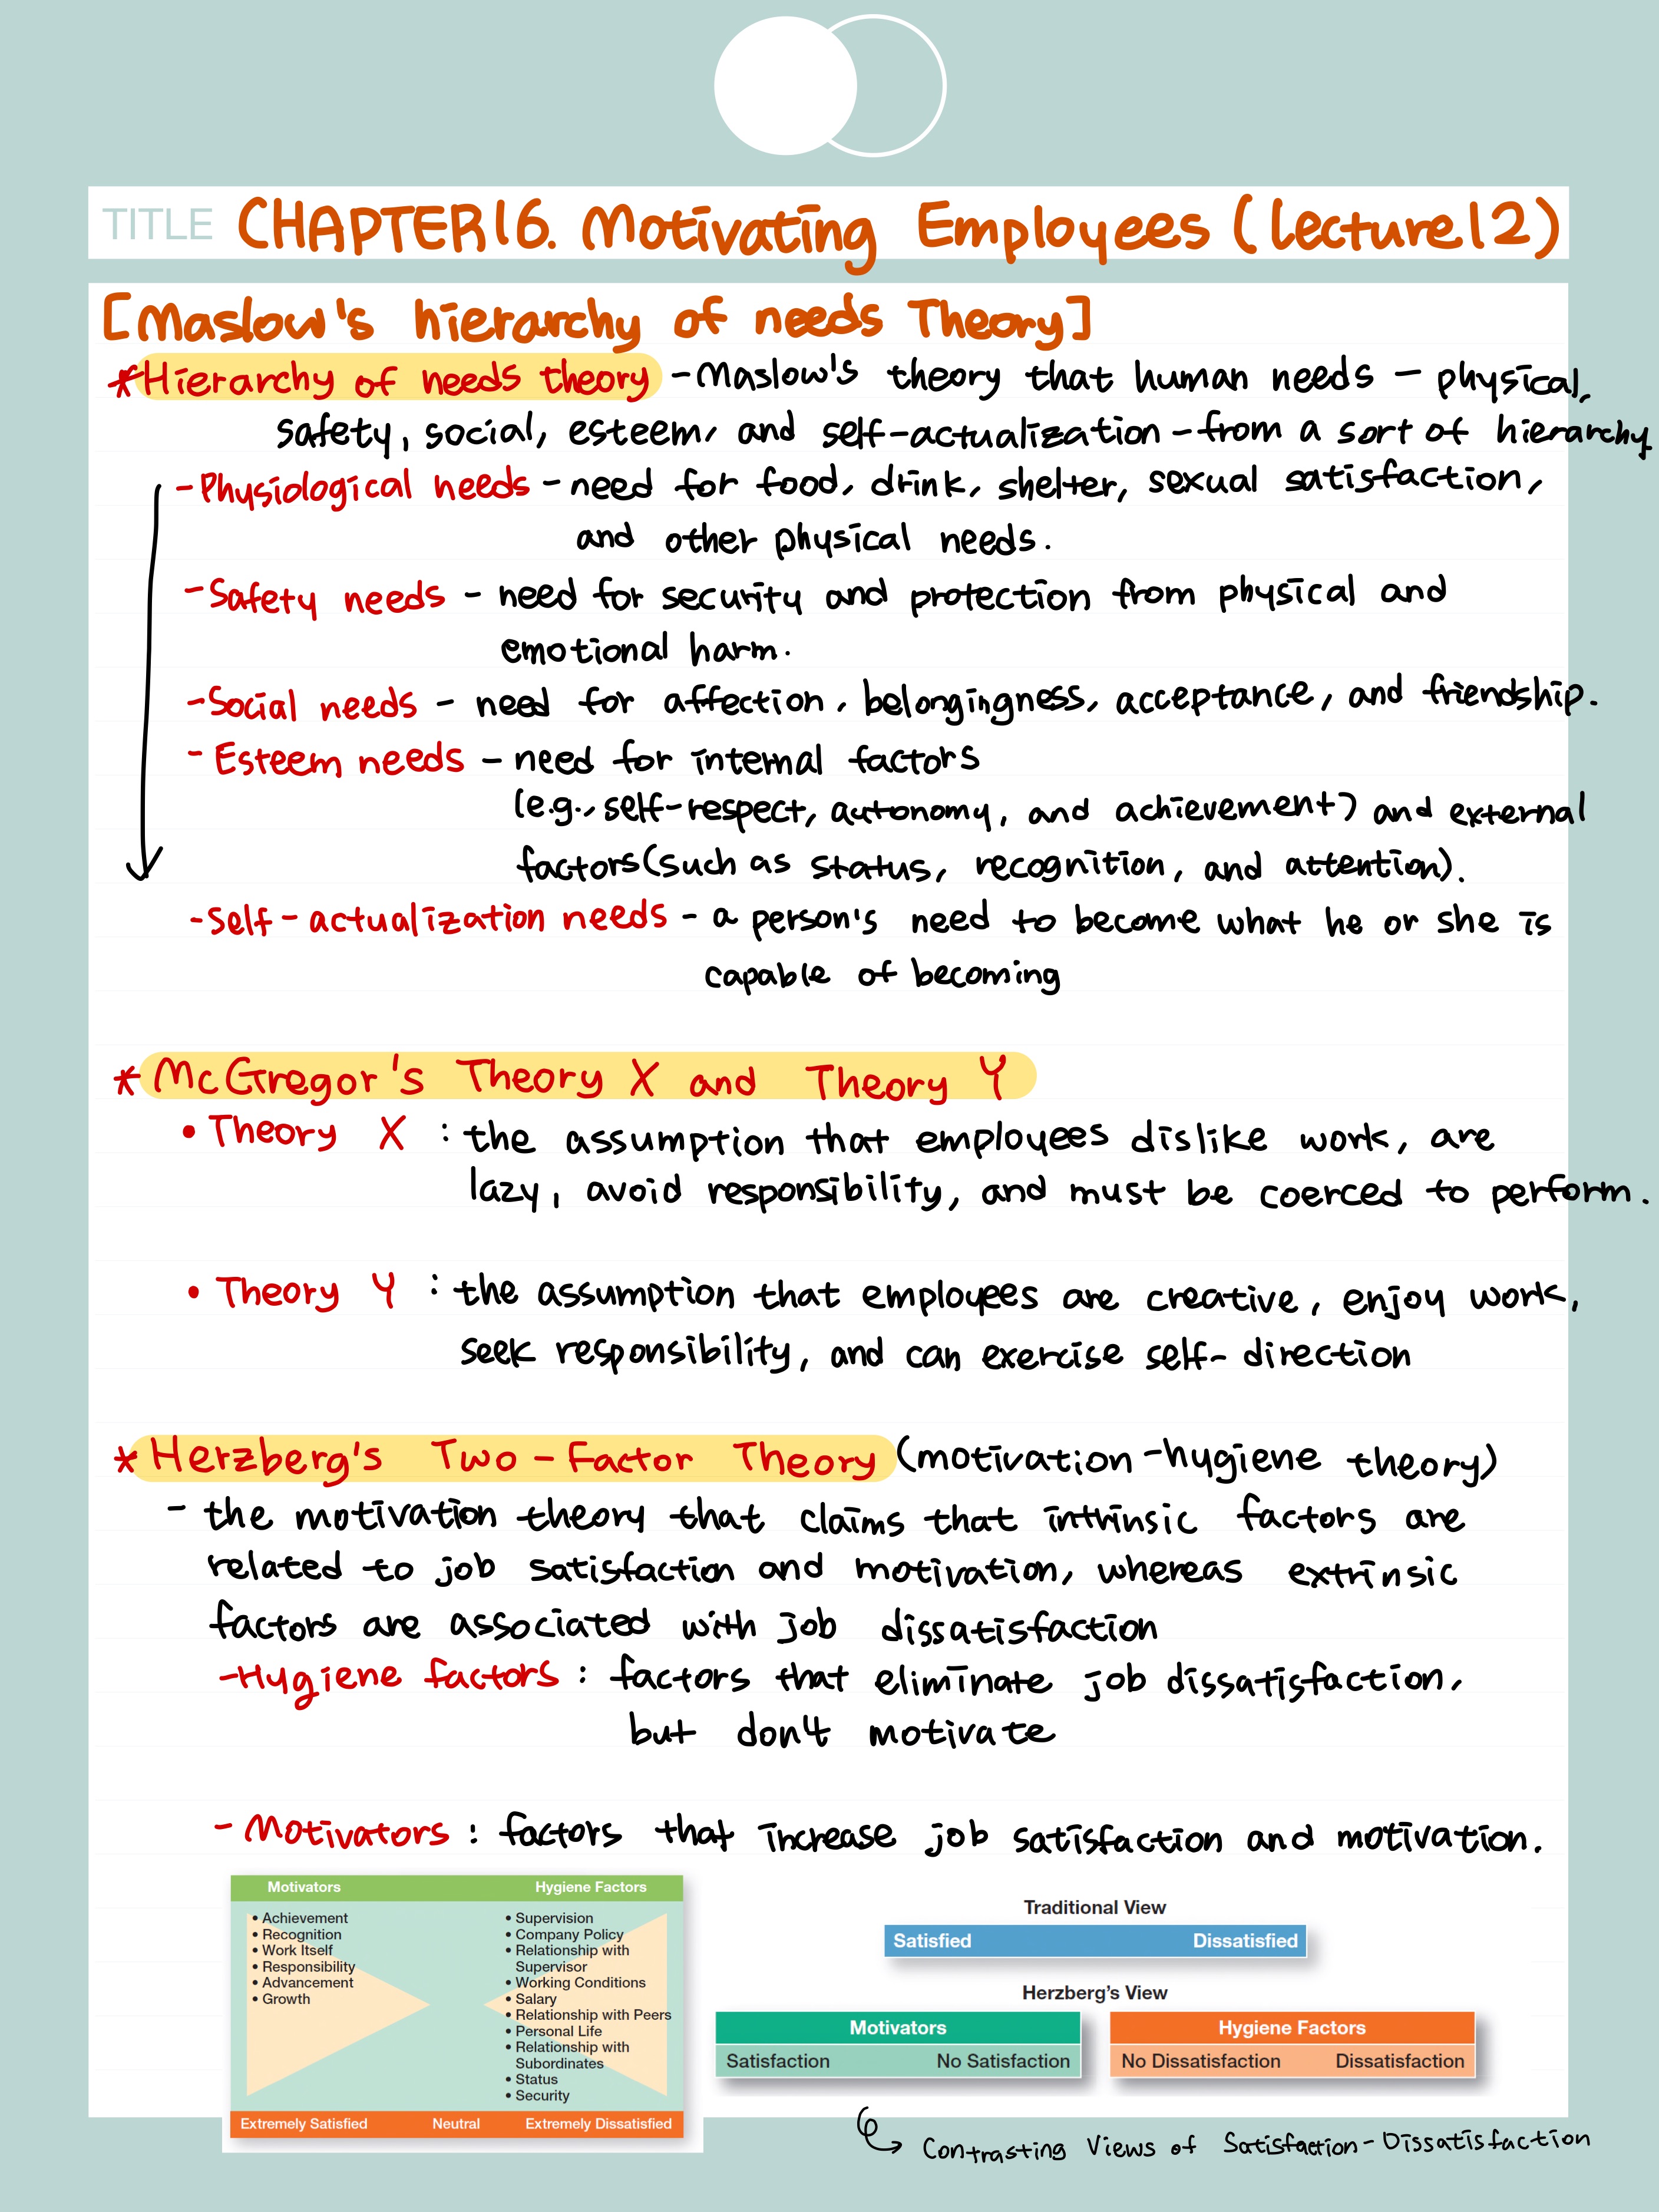 TITLE CHAPTER 16. Motivating Employees (Lecture 12)
[Maslow's hierarchy of needs Theory]
*Hierarchy of needs theory - Maslow's theory that human needs - physical,
safety, social, esteem, and self-actualization - from a sort of hierarchy
- Physiological needs - need for food, drink, shelter, sexual satisfaction,
and other physical needs.
- Safety needs - need for security and protection from physical and
emotional harm.
- Social needs - need for affection, belongingness, acceptance, and friendship.
- Esteem needs - need for internal factors
(e.g., self-respect, autonomy, and achievement) and external
factors (such as status, recognition, and attention).
- Self-actualization needs - a person's need to become what he or she is
capable of becoming
* McGregor's Theory X and Theory Y
• Theory X : the assumption that employees dislike work, are
lazy, avoid responsibility, and must be coerced to perform.
• Theory Y : the assumption that employees are creative, enjoy work,
seek responsibility, and can exercise self-direction
* Herzberg's Two-Factor Theory (motivation-hygiene theory)
- the motivation theory that claims that intrinsic factors are
related to job satisfaction and motivation, whereas extrinsic
factors are associated with job dissatisfaction
- Hygiene factors : factors that eliminate job dissatisfaction,
but don't motivate
- Motivators : factors that increase job satisfaction and motivation.
Motivators Hygiene Factors
• Achievement
• Recognition
• Work Itself
• Responsibility
• Advancement
• Growth
• Supervision
• Company Policy
• Relationship with
Supervisor
• Working Conditions
• Salary
• Relationship with Peers
• Personal Life
• Relationship with
Subordinates
• Status
• Security
Extremely Satisfied Neutral Extremely Dissatisfied
Traditional View
Satisfied Dissatisfied
Herzberg's View
Motivators Hygiene Factors
Satisfaction No Satisfaction No Dissatisfaction Dissatisfaction
Contrasting Views of Satisfaction-Dissatisfaction